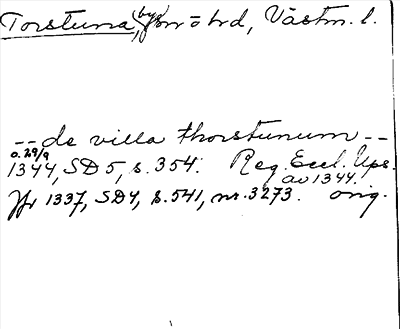 Torstuna, by, Simtuna hrd, Västm. l.
-- de villa thorstunum --
o. 29/9
1344, SD 5, s. 354. Reg. Eccl. Ups.
av 1344.
Jfr 1337, SD 4, s. 541, nr. 3273. orig.